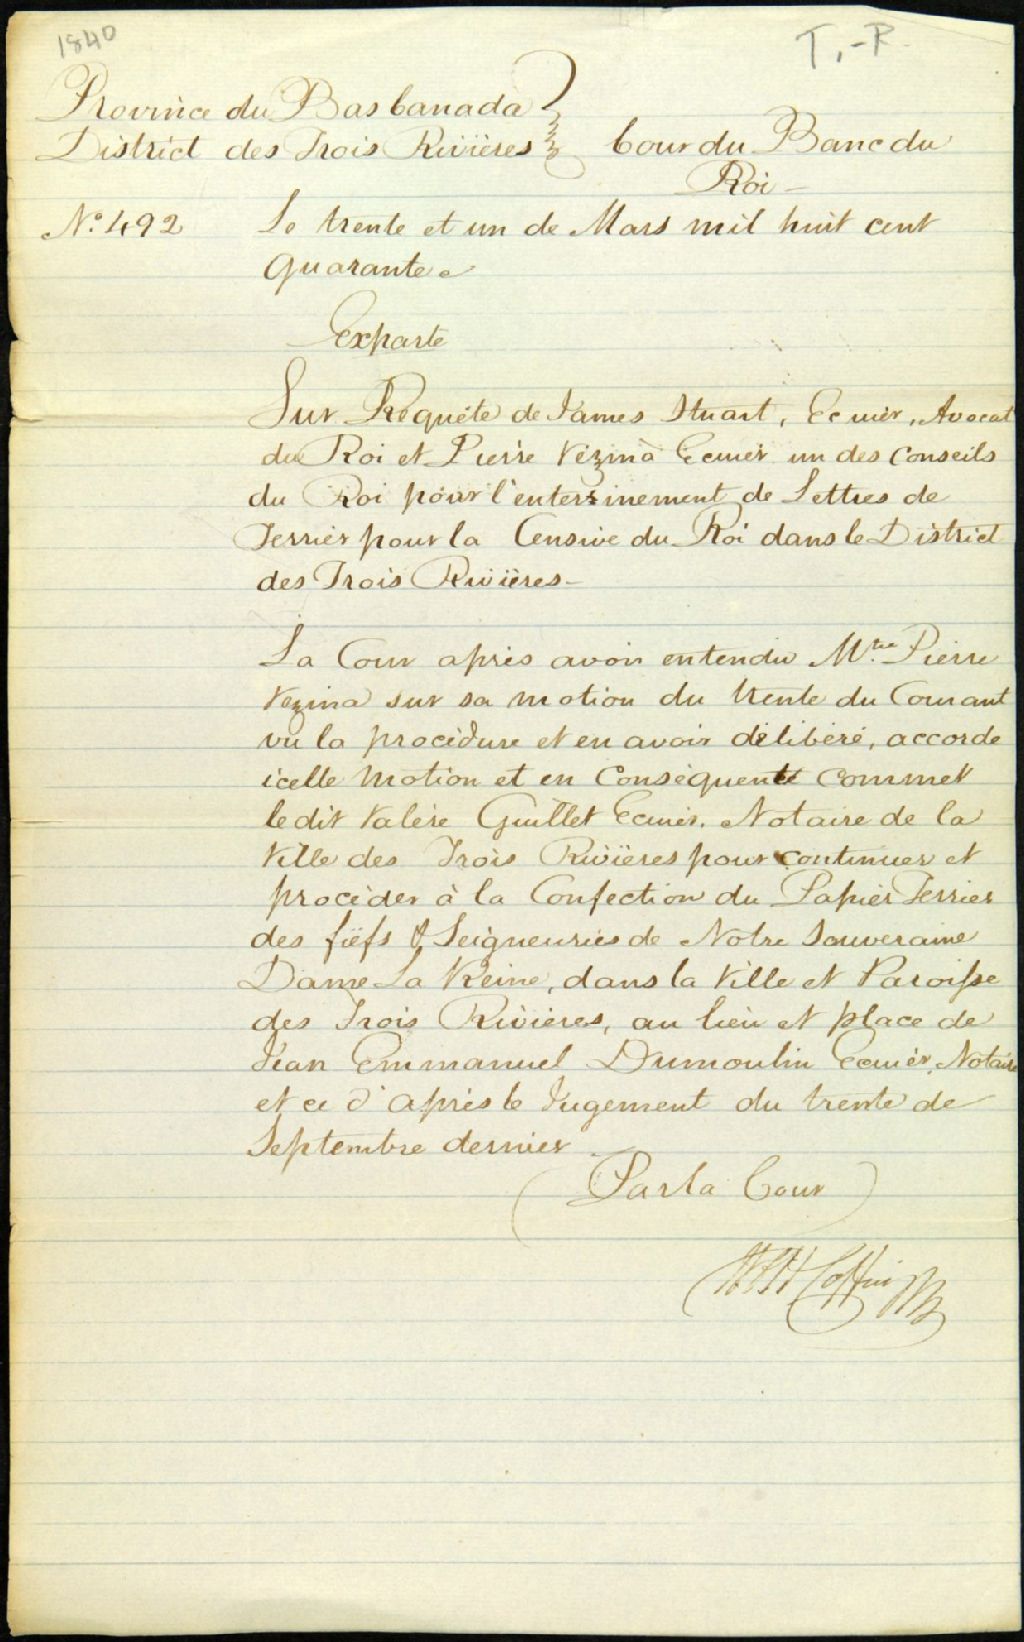 1840
T,-R.
Province du Bas Canada
District des Trois Rivières
Cour du Banc du
Roi -
No. 492
Le trente et un de Mars mil huit cent
Quarante.
Exparte
Sur Requête de James Stuart, Ecuier, Avocat
du Roi et Pierre Vézina Ecuier un des Conseils
du Roi pour l'enterzinement de Lettres de
Terrier pour la Censive du Roi dans le District
des Trois Rivières -
La Cour après avoir entendu Mtre Pierre
Vezina sur sa motion du trente du Courant
vu la procédure et en avoir délibéré, accorde
icelle Motion et en Conséquent commet
le dit Valère Guillet Ecuier. Notaire de la
Ville des Trois Rivières pour continuer et
procéder à la Confection du Papier Terrier
des fiefs & Seigneuries de Notre Souveraine
Dame La Reine, dans la Ville et Paroisse
des Trois Rivières, au lieu et place de
Jean Emmanuel Dumoulin Ecuier, Notaire
et ce d'après le Jugement du trente de
Septembre dernier
(Par la Cour)
Coffin